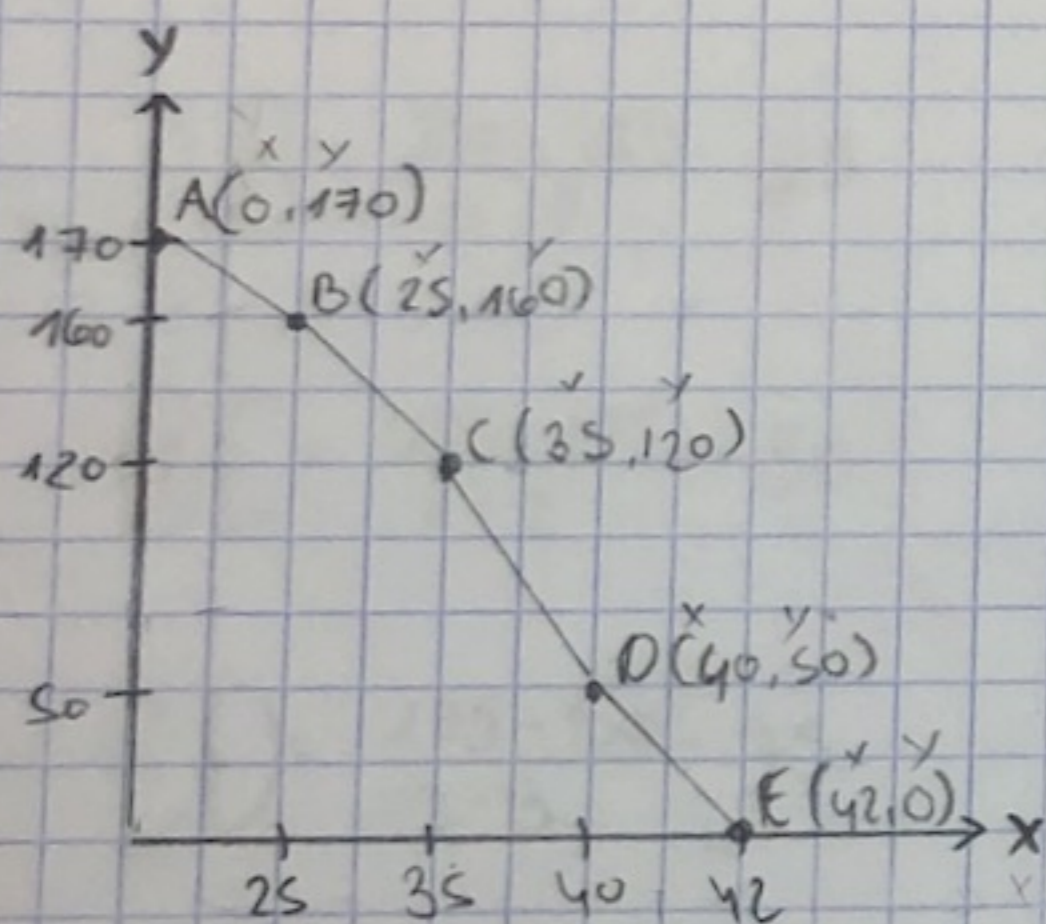 y
x y
A(0,170)
170
x y
B(25,160)
160
x y
C(35,120)
120
x y
D(40,50)
50
x y
E(42,0)
x
25 35 40 42